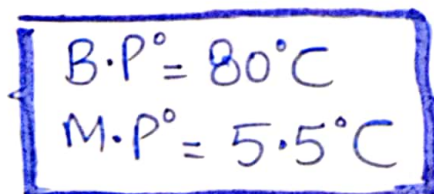 B.P°= 80°C
M.P°= 5.5°C